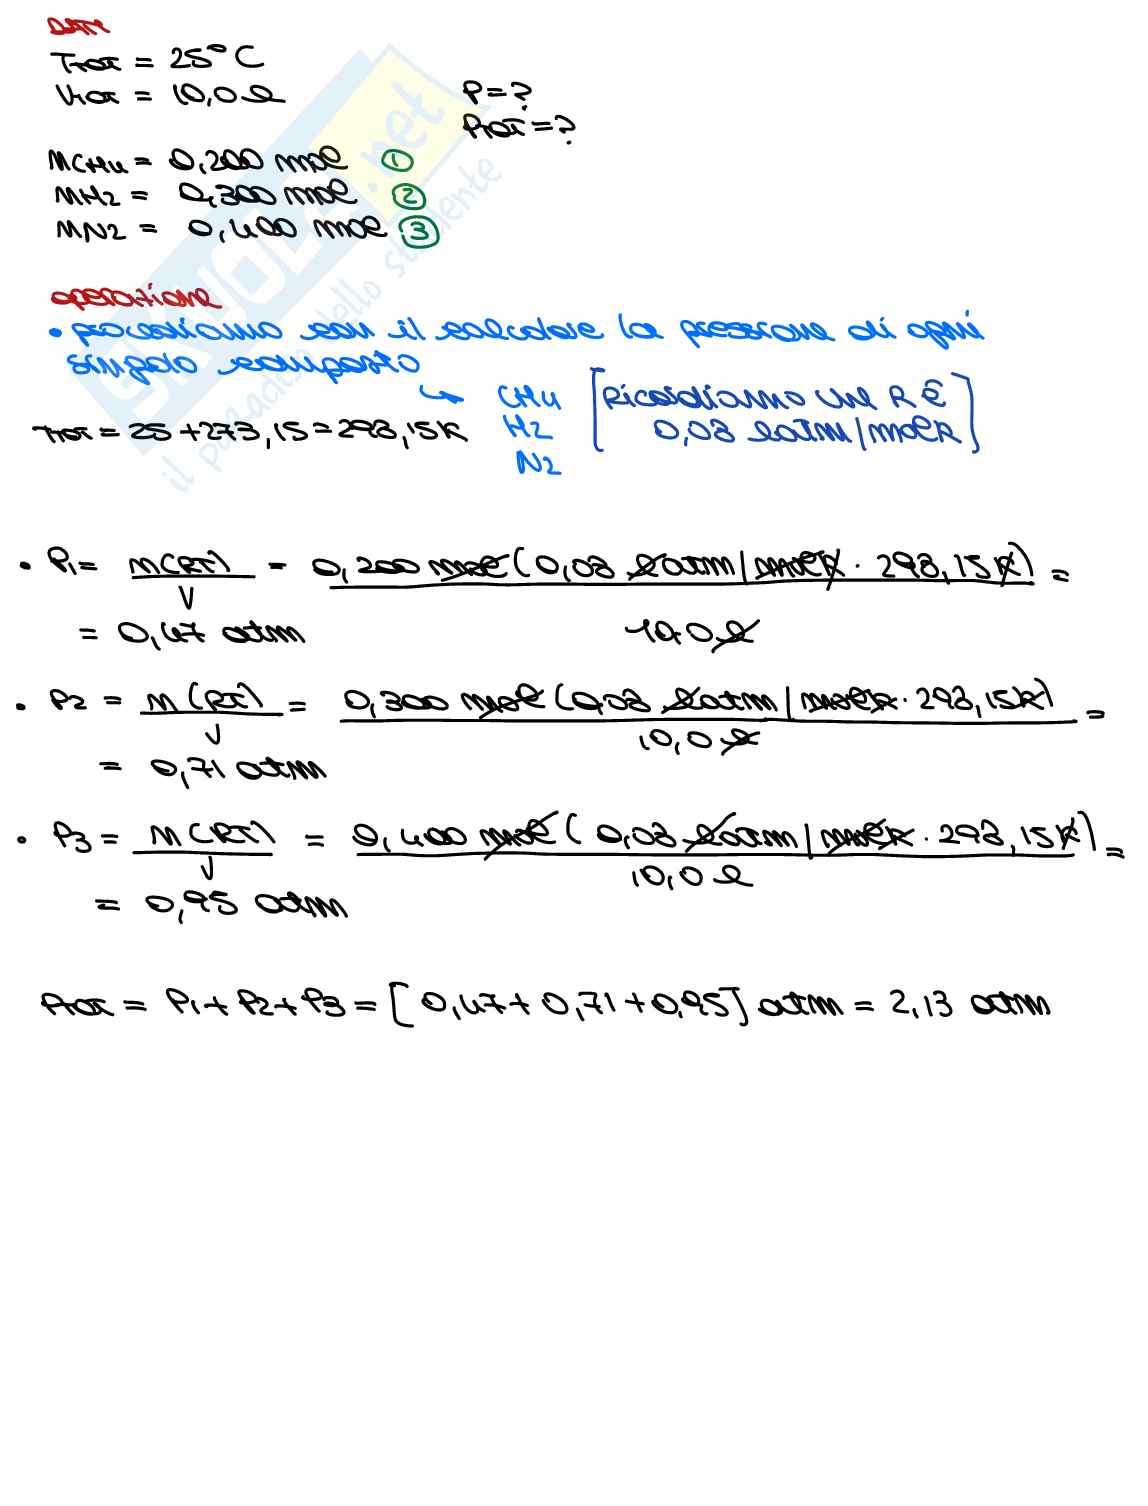 DATI
Ttot = 25°C
Vtot = 10,0 l
P = ?
Ptot = ?
nCH4 = 0,200 mol ①
nH2 = 0,300 mol ②
nN2 = 0,400 mol ③
operazione
• procediamo con il calcolare la pressione di ogni
singolo composto
↳ CH4
H2
N2
[Ricordiamo che R è
0,08 l atm/mol K]
Ttot = 25 + 273,15 = 298,15 K
• P1 = n(RT)/V = 0,200 mol (0,08 l atm/mol K · 298,15 K)/10,0 l =
= 0,47 atm
• P2 = n(RT)/V = 0,300 mol (0,08 l atm/mol K · 298,15 K)/10,0 l =
= 0,71 atm
• P3 = n(RT)/V = 0,400 mol (0,08 l atm/mol K · 298,15 K)/10,0 l =
= 0,95 atm
Ptot = P1 + P2 + P3 = [0,47 + 0,71 + 0,95] atm = 2,13 atm
SKUOLA.net
il paradiso dello studente